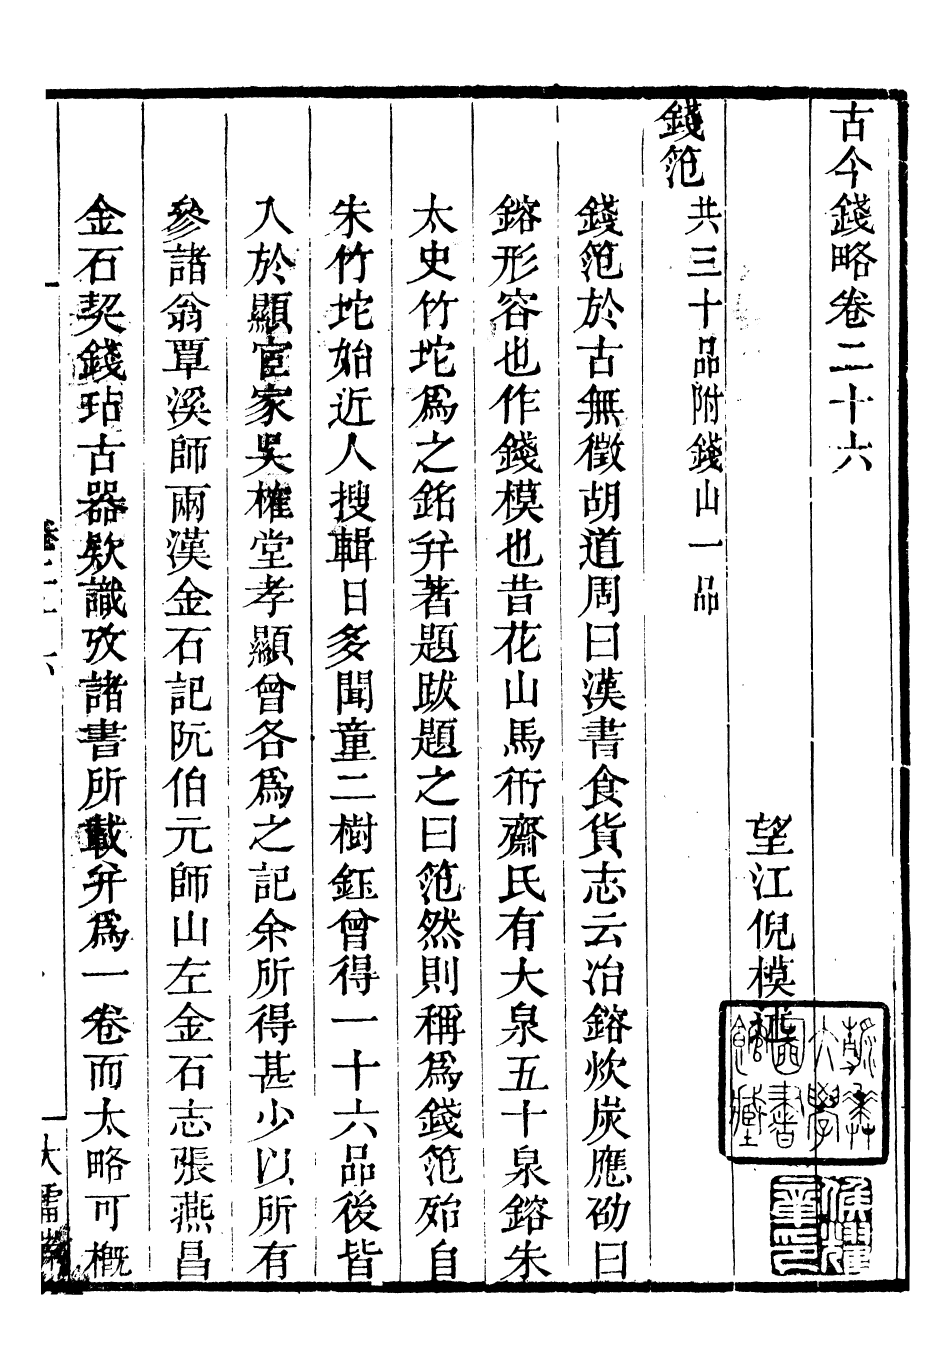 古今錢略卷二十六
望江倪模述
錢笵共三十品附錢山一品
錢笵於古無徵胡道周曰漢書食貨志云冶鎔炊炭應劭曰
鎔形容也作錢模也昔花山馬衎齋氏有大泉五十泉鎔朱
太史竹垞爲之銘幷著題跋題之曰笵然則稱爲錢笵殆自
朱竹垞始近人搜輯日多聞童二樹鈺曾得一十六品後皆
入於顯宦家吳榷堂孝顯曾各爲之記余所得甚少以所有
參諸翁覃溪師兩漢金石記阮伯元師山左金石志張燕昌
金石契錢坫古器欵識攷諸書所載幷爲一卷而太略可概
卷二十六
一
大雷岸
燕京大學圖書館藏